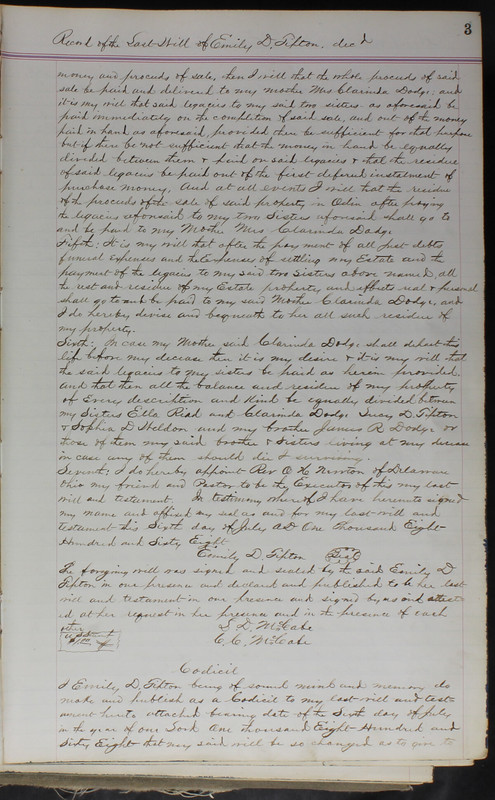 3
Record of the Last Will of Emily D. Tipton, dec'd
money and proceeds of sale, then I will that the whole proceeds of said
sale be paid and delivered to my mother Mrs Clarinda Dodge; and
it is my will that said legacies to my said two sisters as aforesaid be
paid immediately on the completion of said sale, and out of the money
paid in hand as aforesaid, provided there be sufficient for that purpose
but if there be not sufficient that the money in hand be equally
divided between them & paid on said legacies & that the residue
of said legacies be paid out of the first deferred instalment of
purchase money, And at all events I will that the residue
of the proceeds of the sale of said property in after paying
the legacies aforesaid to my two Sisters aforesaid shall go to
and be paid to my Mother Mrs Clarinda Dodge
Fifth: It is my will that after the payment of all just debts
funeral expenses and the expenses of settling my Estate and the
payment of the legacies to my said two Sisters above named, all
the rest and residue of my Estate property and effects real & personal
shall go to and be paid to my said Mother Clarinda Dodge, and
I do hereby devise and bequeath to her all such residue of
my property.
Sixth: In case my Mother said Clarinda Dodge shall depart this
life before my decease then it is my desire & it is my will that
the said legacies to my sisters be paid as herein provided
and that then all the balance and residue of my property
of every description and kind be equally divided between
my Sisters Ella Reid and Clarinda Dodge D Tipton
& Sophia D Heldon and my brother James R Dodge or
those of them my said brother & Sisters living at my decease
in case any of them should die I surviving.
Seventh: I do hereby appoint Rev O H Newton of Delaware
Ohio my friend and Pastor to be the Executor of this my last
will and testament. In testimony whereof I have hereunto signed
my name and affixed my seal as and for my last will and
testament this Sixth day of July AD One Thousand Eight
Hundred and Sixty Eight.
Emily D. Tipton Seal
The forgoing will was signed and sealed by the said Emily D
Tipton in our presence and declared and published to be her last
will and testament in our presence and signed by us and attest
ed at her request in her presence and in the presence of each
other
S. D. McCabe
C. C. McCabe
Codicil
I Emily D. Tipton being of sound mind and memory do
make and publish as a Codicil to my last will and test-
ament hereto attached bearing date of the Sixth day of July
in the year of our Lord One thousand Eight Hundred and
Sixty Eight that my said will be so changed as to give to